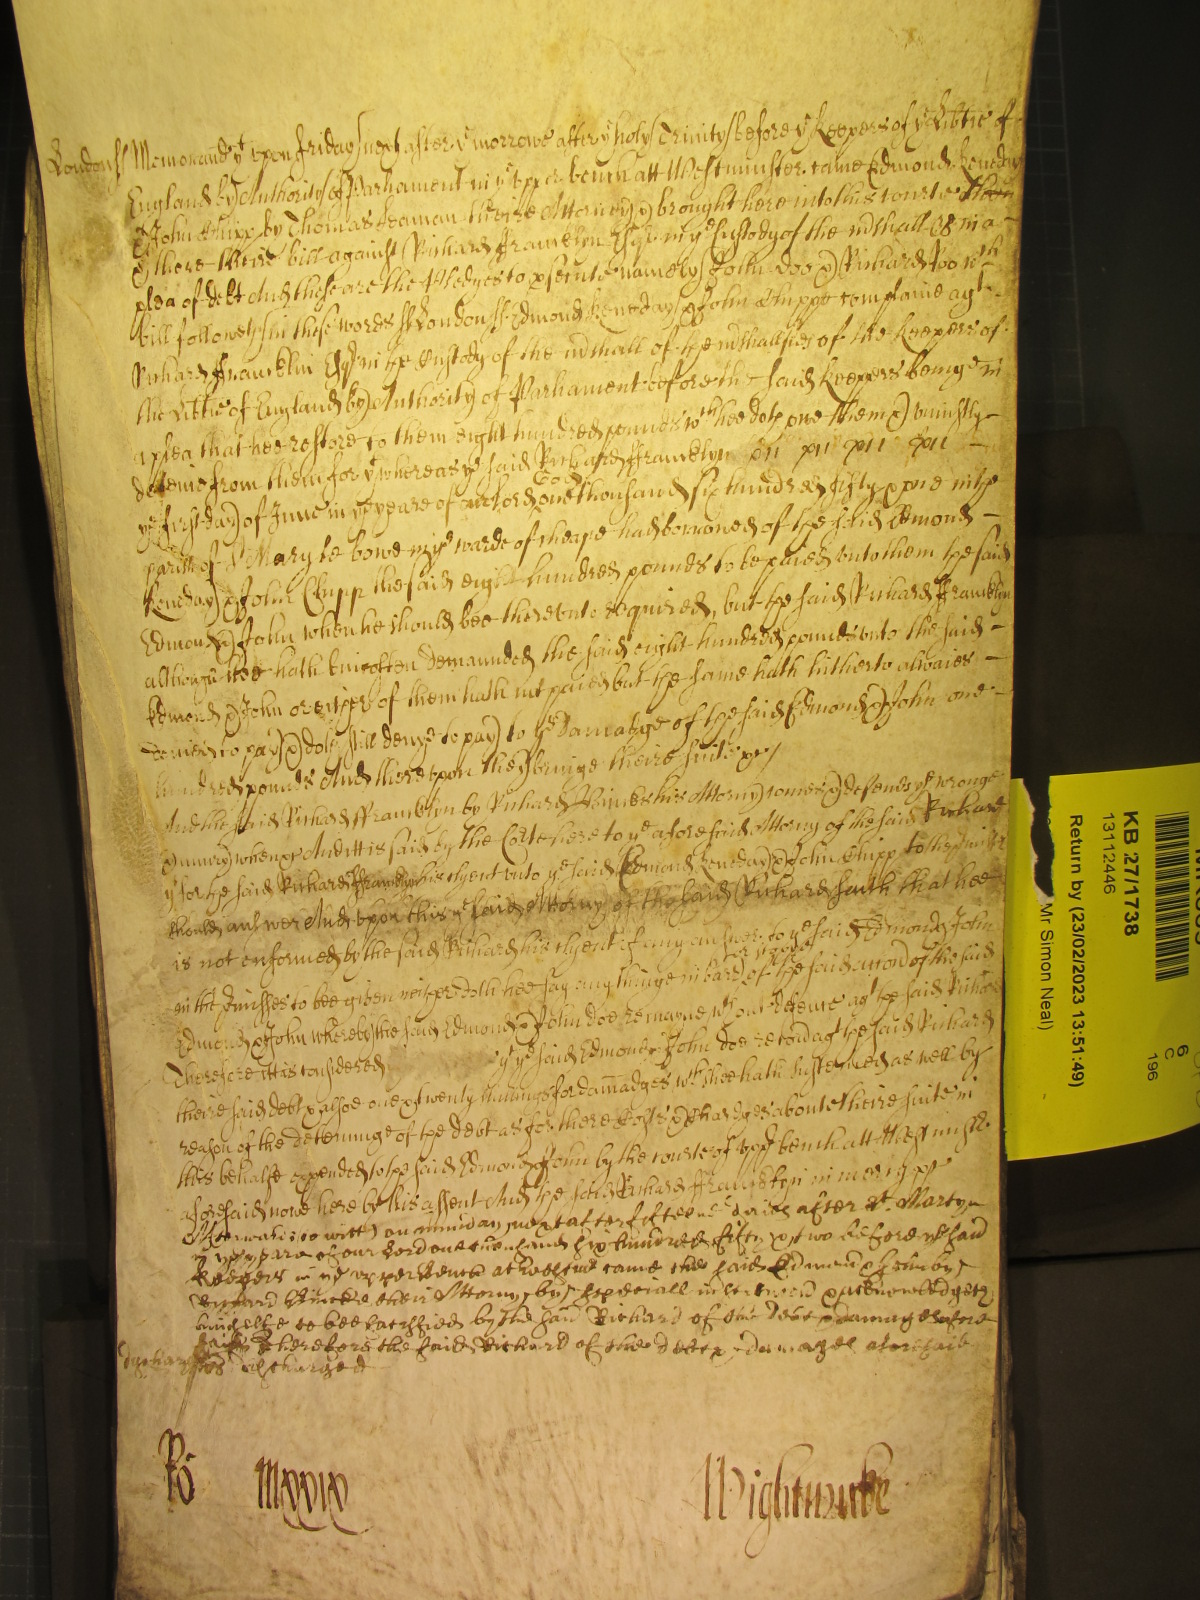 London ss Memorand yt upon Friday next after ye morrowe after ye holy Trinity before ye keepers of ye Libtie of
England by Authority of Parliament in ye upper bench att Westminster came Edmond Keneday
& John Chipp by Thomas Seaman theire Attorney & brought here into this courte then
& there theire bill against Richard Francklyn Esqr in ye Custody of the mshall &c in a
plea of debt And these are the Pledges to psecute namely John Doo & Richard Roo wch
bill followeth in these words ss London ss Edmond Keneday & John Chipp complaine agt
Richard Francklin Esqr in the Custody of the mshall of the mshallsies of the keepers of
the Libtie of England by Authority of Parliament before the said keepers beinge in
a plea that hee restore to them eight hundred pounds wch hee doth owe them & uniustly
deteine from them for yt whereas ye said Richard Francklyn
ye first day of June in ye yeare of our Lord God one thousand six hundred fifty & one in the
parish of St Mary le bowe in ye warde of cheape had borrowed of the said Edmond
Keneday & John Chipp the said eight hundred pounds to be paied unto them the said
Edmond & John when he should bee thereunto required, but the said Richard Francklyn
although hee hath bin often demaunded the said eight hundred pounds unto the said
Edmond & John or either of them hath not paied but the same hath hitherto alwaies
denied to pay & doth still denye to pay to ye damadge of the said Edmond & John one
hundred pounds And thereupon they bringe theire suite &c
And the said Richard Francklyn by Richard his Attorny comes & defends ye wronge
& iniury when &c And itt is said by the Corte here to ye aforesaid Attorny of the said Richard
yt for the said Richard Francklyn his clyent unto ye said Edmond Keneday & John Chipp to theire
should answere And upon this ye said Attorny of the said Richard saith that hee
is not enformed by the said Richard his clyent of any answer to ye said Edmond & John
in the pmisses to bee given neither doth hee say any thinge in barr or stopp of the said accon of the said
Edmond & John whereby the said Edmond & John doe remayne wthout defence agt the said Richard
Therefore itt is considered yt ye said Edmond & John doe recover agt the said Richard
theire said debt & alsoe one & twenty shillings for damadges wch they hath susteined as well by
reason of the deteininge of the debt as for there Costs & Chardges aboute theire suite in
this behalfe expended to the said Edmond & John by the courte of uppr bench att Westminstr
aforesaid nowe here by his assent And the said Richard Francklyn in mercy &c
Afterwards to witt on munday next after fifteene daies after St Martyn
in ye yeare of our Lord one thousand six hundred fifty & two before ye said
keepers in ye upper bench at Westmr came the said Edmond & John by
Richard their Attorny by speciall & acknowledgeth
himselfe to bee satisfied by the said Richard of the debt & damages afore
said Therefore the said Richard of the debt & damages aforesaid
is discharged
Dischardged
Ro MXXIX Wightwicke
MR KB 27/1738
13112446
Return by (23/02/2023 13:51:49)
Mr Simon Neal)
6
C
196